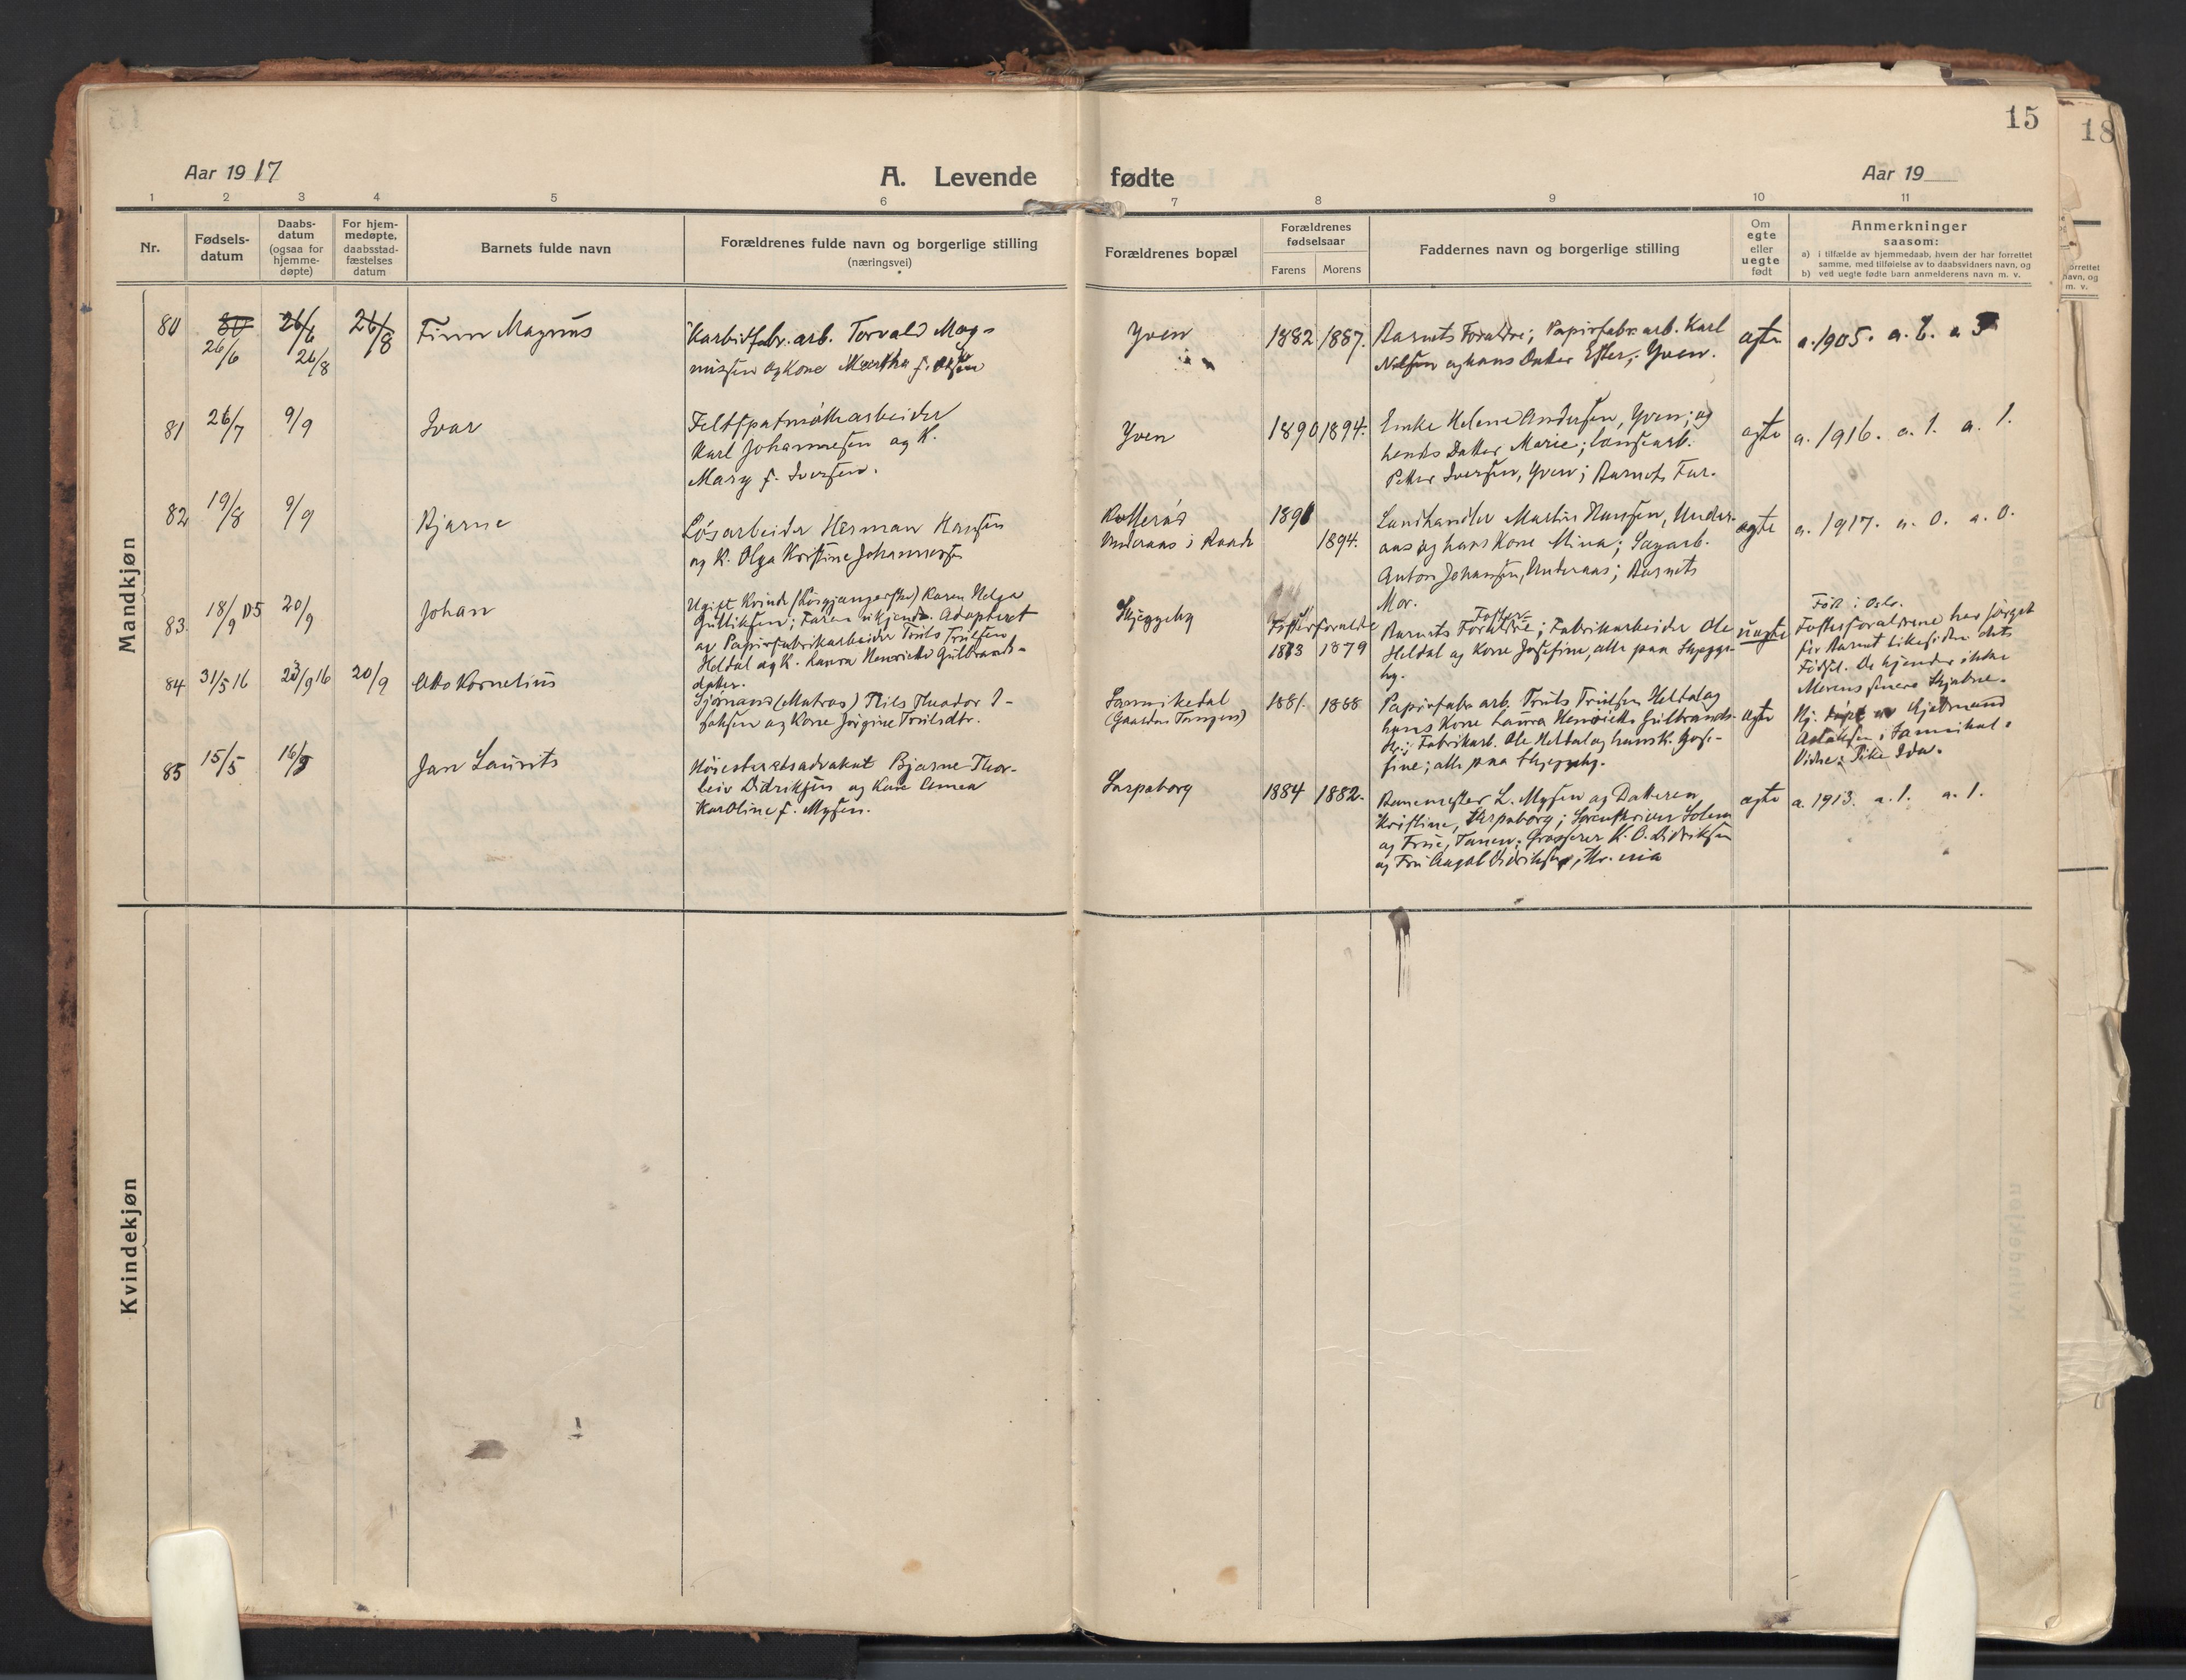 15
18
Aar 1917
A. Levende fødte
Aar 19
1 2 3 4 5 6 7 8 9 10 11
Nr.
Fødsels-
datum
Daabs-
datum
(ogsaa for
hjemme-
døpte)
For hjem-
medøpte,
daabsstad-
fæstelses
datum
Barnets fulde navn
Forældrenes fulde navn og borgerlige stilling
(næringsvei)
Forældrenes bopæl
Forældrenes
fødselsaar
Farens Morens
Faddernes navn og borgerlige stilling
Om
egte
eller
uegte
født
Anmerkninger
saasom:
a) i tilfælde av hjemmedaab, hvem der har forrettet
samme, med tilføielse av to daabsvidners navn, og
b) ved uegte fødte barn anmelderens navn m. v.
Mandkjøn
80
26/6
26/8
26/8
Finn Magnus
Karbidfabr. arb. Torvald Mag-
nussen og Kone Martha f. Olsen
Yven
1882 1887.
Barnets Forældre; Papirfabr. arb. Karl
Nilssen og hans Datter Ester; Yven.
ægte
a. 1905. a. 6. a 5
81
26/7
9/9
Ivar
Feltspatmøllearbeider
Karl Johannesen og K.
Mary f. Iversen.
Yven
1890 1894.
Enke Helene Andersen, Yven; og
hendes Datter Marie;
Petter Iversen, Yven; Barnets Far.
ægte
a. 1916. a. 1. a. 1.
82
19/8
9/9
Bjarne
Løsarbeider Herman Hansen
og K. Olga Kristine Johannessen
Underaas i Raade
1891
1894.
Landhandler Martin Hansen, Under-
aas og hans Kone Mina; Sagarb.
Anton Johansen, Underaas; Barnets
Mor.
ægte
a. 1917. a. 0. a. 0.
83
18/9 05
20/9
Johan
Ugift Kvinde (Løsgjængerske) Karen Helga
Gulliksen; Faren ukjendt. Adopteret
av Papirfabrikarbeider Truls Trulsen
Heldal og K. Laura Henriette Gulbrands-
datter.
Skjeggeby
Fosterforældre
1873 1879
Foster
Barnets Forældre; Fabrikarbeider Ole
Heldal og Kone Josefine, alle paa Skjegge-
by.
uægte
Født i Oslo.
Fosterforældrene har sørget
for Barnet like siden dets
Fødsel. De kjender ikke
Morens senere Skjæbne.
84
31/5 16
23/9 16
20/9
Otto Kornelius
Sjømand (Matros) Nils Theodor I-
saksen og Kone Jørgine Trulsdtr.
Sannikedal
(Gaarden Tangen)
1881. 1888
Papirfabr. arb. Truls Trulsen Heldal og
hans Kone Laura Henriette Gulbrands-
dtr.; Fabrikarb. Ole Heldal og hans K. Jose-
fine; alle paa Skjeggeby.
ægte
Hj. døpt av
Aslaksen i Sannikedal.
Vidne: Pike Ida.
85
15/5
16/9
Jan Laurits
Høiesteretsadvokat Bjarne Thor-
leiv Didriksen og Kone Anna
Karoline f. Mysen.
Sarpsborg
1884 1882.
Banemester L. Mysen og Datteren
Kristine, Sarpsborg; Sorenskriver Solem
og Frue, Tanen; Grosserer K. O. Didriksen
og Fru Aagot Didriksen, Kr.ania
ægte
a. 1913. a. 1. a. 1.
Kvindekjøn